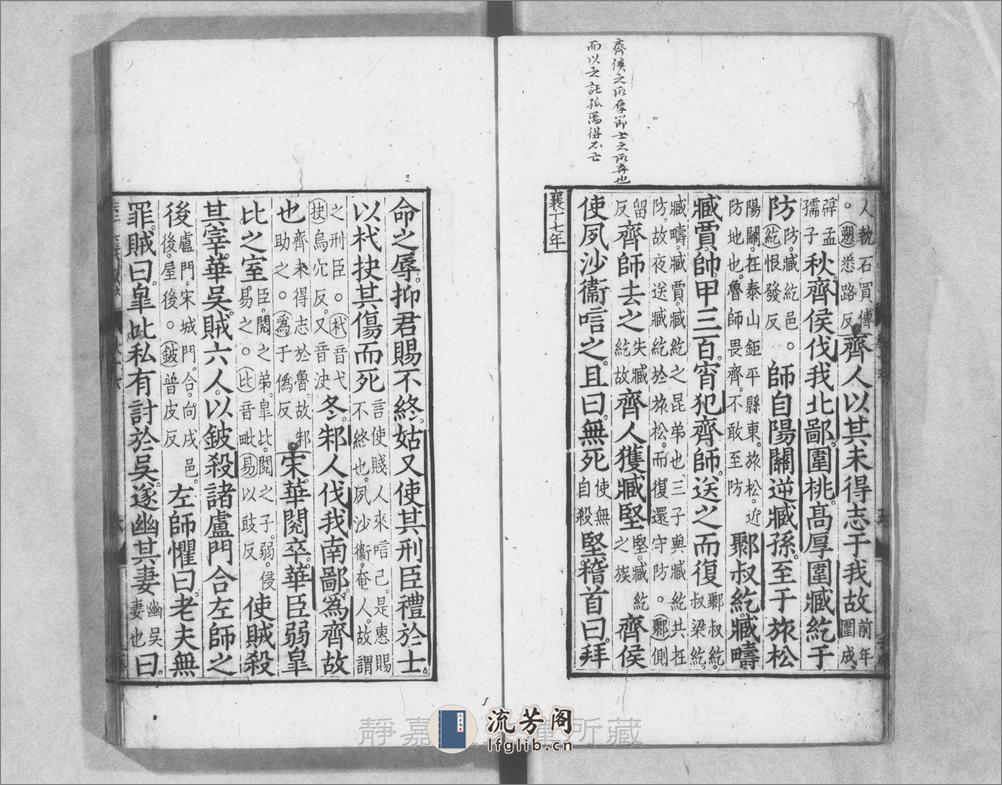 齊侯之所
節士之所弃也
而以之託孤焉得不亡
人執石買傳。愬悉路反齊人以其未得志于我故前年圍成
辟孟孺子秋齊侯伐我北鄙圍桃高厚圍臧紇于
防防臧紇邑。紇恨發反師自陽關逆臧孫至于旅松
陽關在泰山鉅平縣東旅松近防地也魯師畏齊不敢至防鄹叔紇臧疇
臧賈帥甲三百宵犯齊師送之而復鄹叔紇叔梁紇
臧疇臧賈臧紇之昆弟也三子與臧紇共在防故夜送臧紇於旅松而復還守防。鄹側
留反齊師去之失臧紇故齊人獲臧堅堅臧紇之族齊侯
使夙沙衞唁之且曰無死使無自殺堅稽首曰拜
襄十七年
命之辱抑君賜不終姑又使其刑臣禮於士
以杙抉其傷而死言使賤人來唁己是惠賜不終也夙沙衞奄人故謂
之刑臣。杙音弋抉烏穴反又音決冬邾人伐我南鄙爲齊故
也齊未得志於魯故邾助之。爲于僞反宋華閱卒華臣弱皐
比之室臣閱之弟皐比閱之子弱侵易之。比音毗易以豉反使賊殺
其宰華吳賊六人以鈹殺諸盧門合左師之
後盧門宋城門合向戌邑後屋後。鈹普皮反左師懼曰老夫無
罪賊曰皐比私有討於吳遂幽其妻幽吳妻也曰
靜嘉
所藏
流芳阁
lfglib.cn